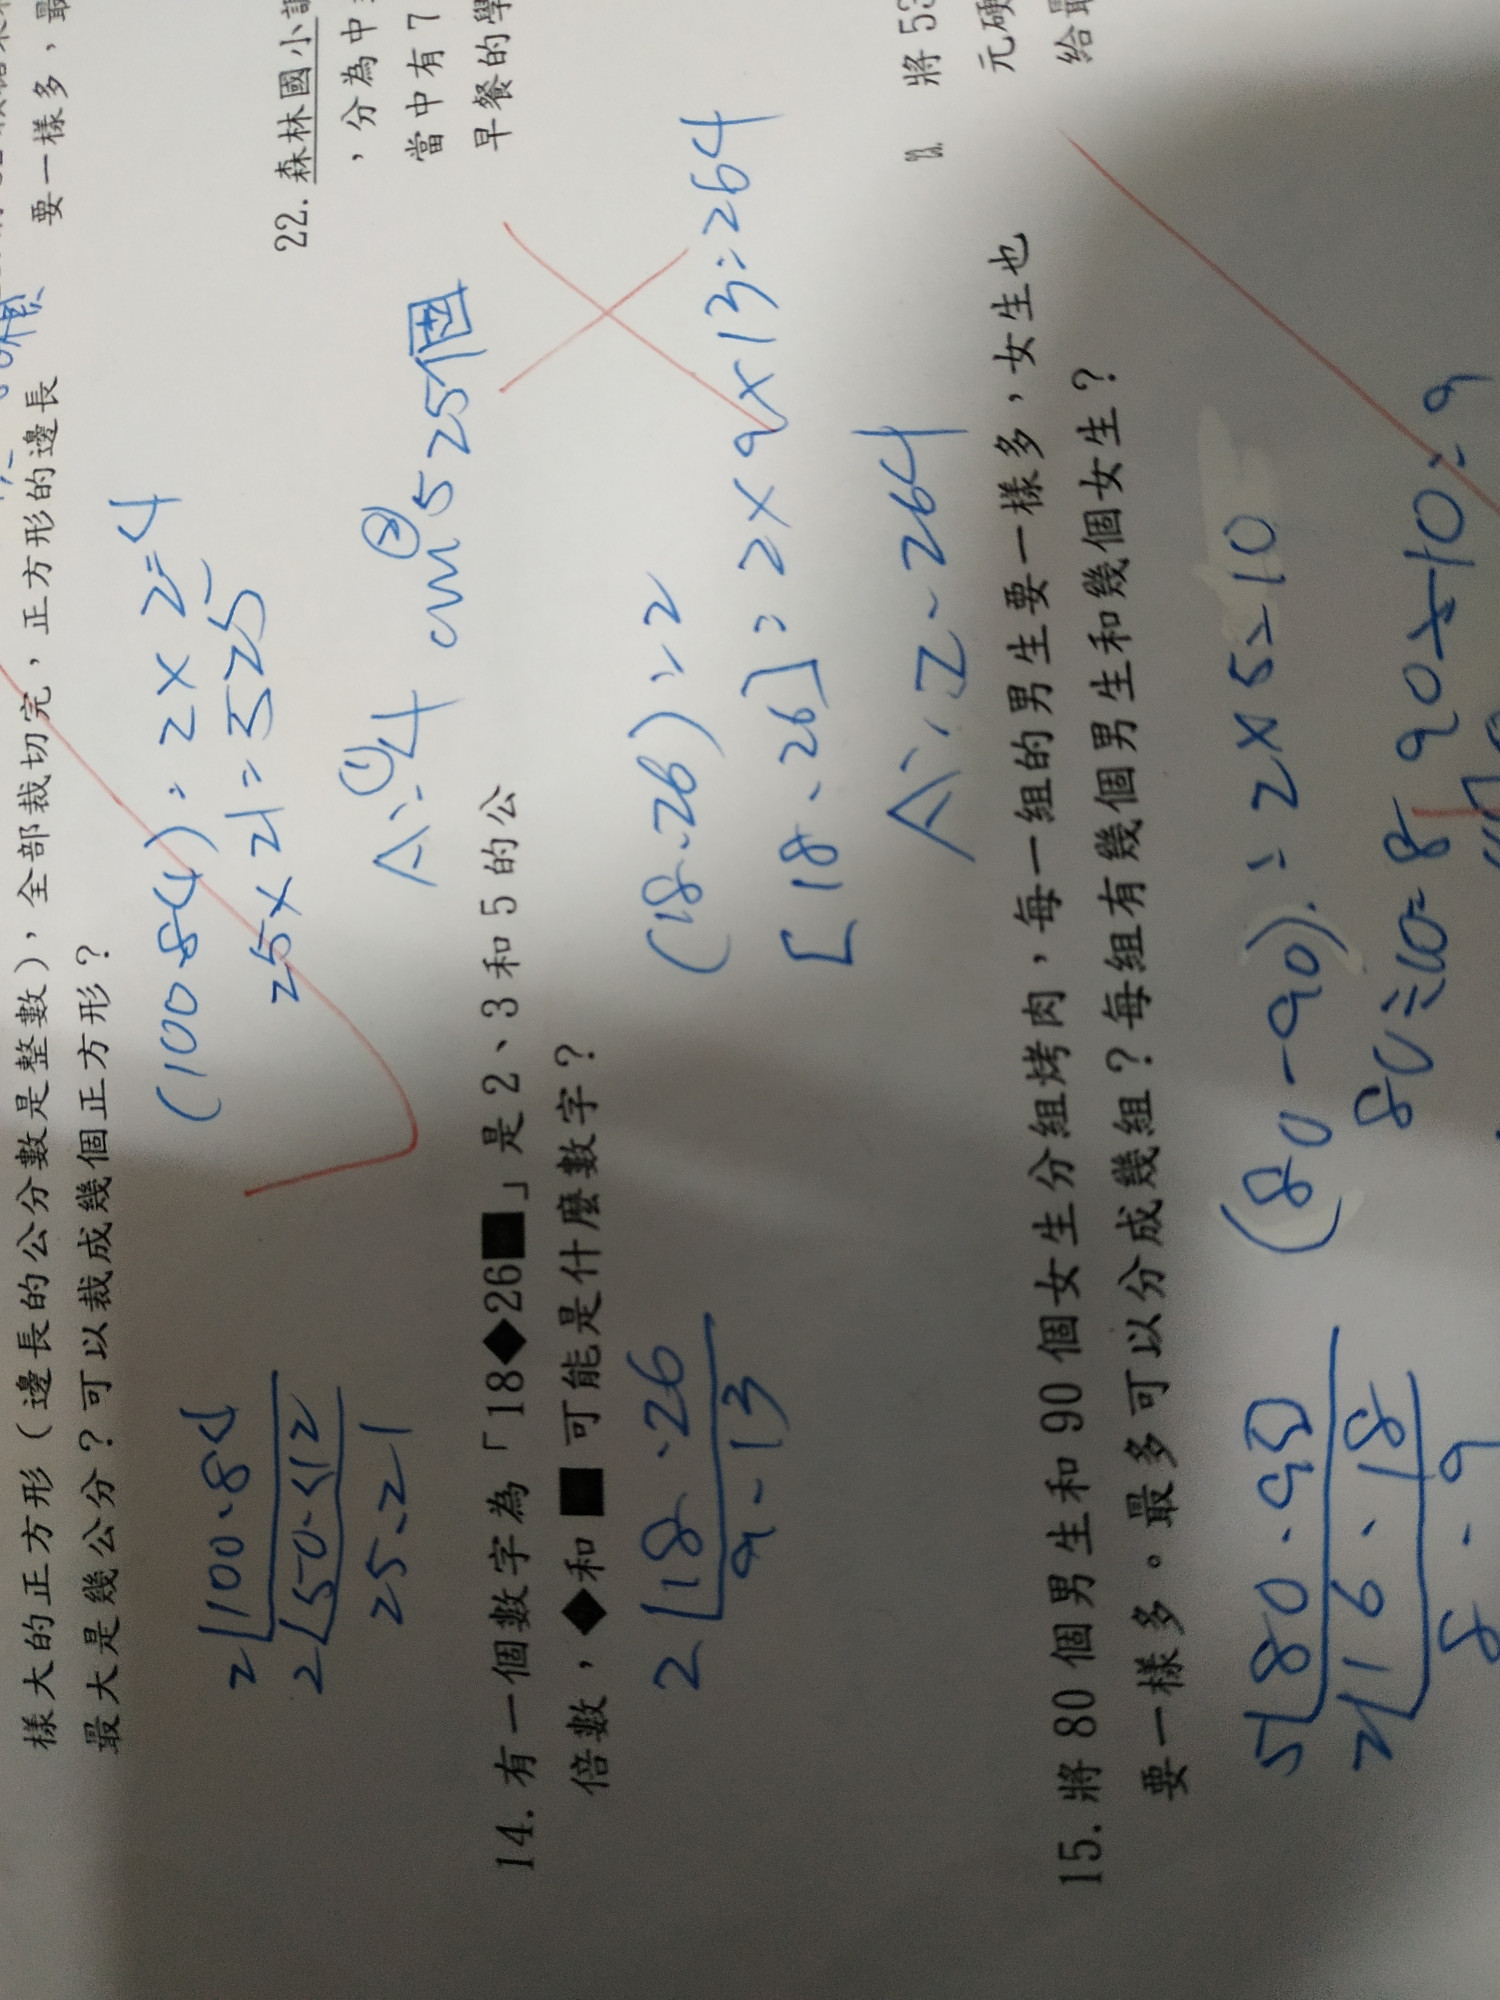 樣大的正方形（邊長的公分數是整數），全部裁切完，正方形的邊長
最大是幾公分？可以裁成幾個正方形？
2 100、84
2 50、42
25、21
(100、84)=2×2=4
25×21=525
A:①4 cm ②525個
14. 有一個數字為「18◆26■」是 2、3 和 5 的公
倍數，◆和■可能是什麼數字？
2 18、26
9、13
(18、26)=2
[18、26]=2×9×13=264
A:2、264
15. 將 80 個男生和 90 個女生分組烤肉，每一組的男生要一樣多，女生也
要一樣多。最多可以分成幾組？每組有幾個男生和幾個女生？
5 80、90
2 16、18
8、9
(80、90)=2×5=10
80÷10=8 90÷10=9
要一樣多，最
22. 森林國小
，分為中
當中有 7
早餐的學
將 53
元硬
給最